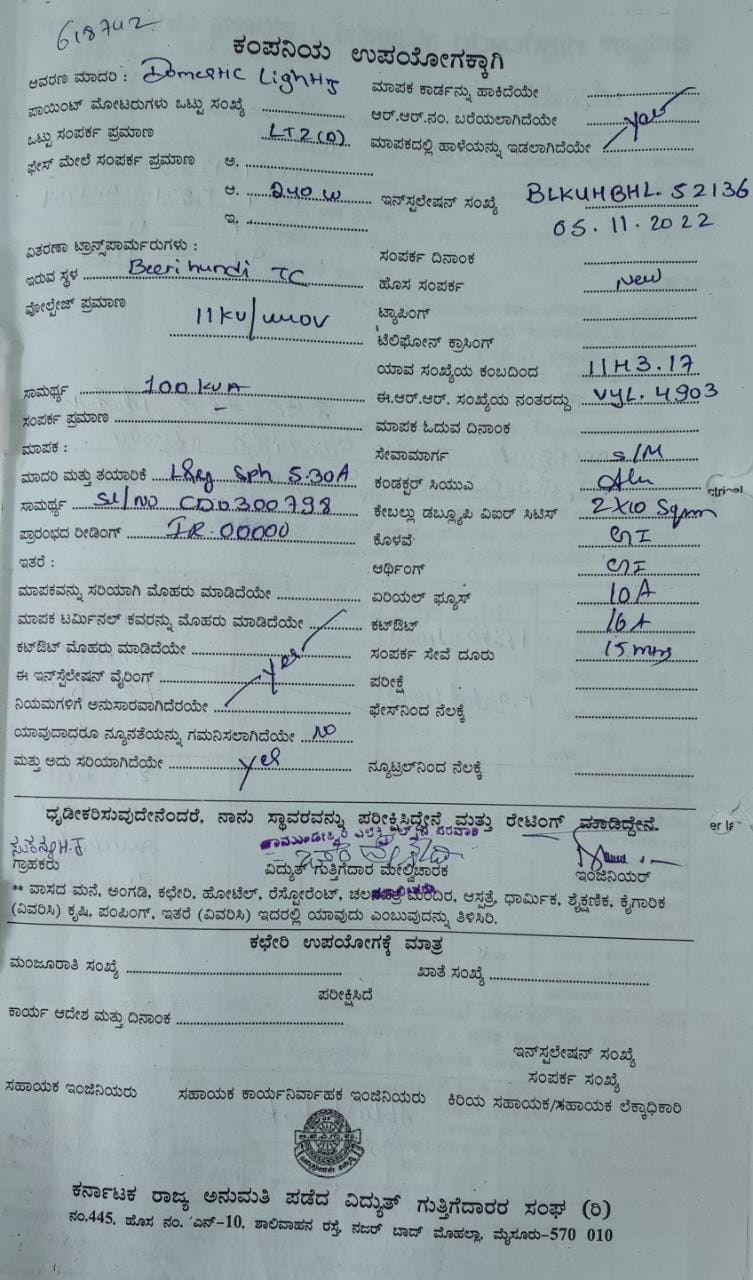 618742
ಕಂಪನಿಯ ಉಪಯೋಗಕ್ಕಾಗಿ
ಆವರಣ ಮಾದರಿ : Domestic Lighting
ಮಾಪಕ ಕಾರ್ಡನ್ನು ಹಾಕಿದೆಯೇ
ಪಾಯಿಂಟ್ ಮೋಟರುಗಳು ಒಟ್ಟು ಸಂಖ್ಯೆ
ಆರ್.ಆರ್.ನಂ. ಬರೆಯಲಾಗಿದೆಯೇ yes
ಒಟ್ಟು ಸಂಪರ್ಕ ಪ್ರಮಾಣ LT2(a)
ಮಾಪಕದಲ್ಲಿ ಹಾಳೆಯನ್ನು ಇಡಲಾಗಿದೆಯೇ
ಫೇಸ್ ಮೇಲೆ ಸಂಪರ್ಕ ಪ್ರಮಾಣ ಅ.
ಆ. 240 W
ಇನ್‌ಸ್ಪಲೇಷನ್ ಸಂಖ್ಯೆ BLKUHBHL. 52136
ಇ.
05.11.2022
ವಿತರಣಾ ಟ್ರಾನ್ಸ್‌ಪಾರ್ಮರುಗಳು :
ಸಂಪರ್ಕ ದಿನಾಂಕ
ಇರುವ ಸ್ಥಳ Beerihundi TC
ಹೊಸ ಸಂಪರ್ಕ New
ವೋಲ್ಟೇಜ್ ಪ್ರಮಾಣ 11KV/440V
ಟ್ಯಾಪಿಂಗ್
ಟೆಲಿಫೋನ್ ಕ್ರಾಸಿಂಗ್
ಯಾವ ಸಂಖ್ಯೆಯ ಕಂಬದಿಂದ 11H3.17
ಸಾಮರ್ಥ್ಯ 100 KVA
ಈ.ಆರ್.ಆರ್. ಸಂಖ್ಯೆಯ ನಂತರದ್ದು VYL. 4903
ಸಂಪರ್ಕ ಪ್ರಮಾಣ
ಮಾಪಕ ಓದುವ ದಿನಾಂಕ
ಮಾಪಕ :
ಸೇವಾಮಾರ್ಗ S/M
ಮಾದರಿ ಮತ್ತು ತಯಾರಿಕೆ L&g Sph 5.30A
ಕಂಡಕ್ಟರ್ ಸಿಯುಎ Alu
ಸಾಮರ್ಥ್ಯ Sl/No CD0300798
ಕೇಬಲ್ಲು ಡಬ್ಲ್ಯೂಪಿ ವಿಐರ್ ಸಿಟಿಸ್ 2X10 Sqmm
ಪ್ರಾರಂಭದ ರೀಡಿಂಗ್ IR.00000
ಕೊಳವೆ GI
ಇತರೆ :
ಆರ್ಥಿಂಗ್ GI
ಮಾಪಕವನ್ನು ಸರಿಯಾಗಿ ಮೊಹರು ಮಾಡಿದೆಯೇ
ಏರಿಯಲ್ ಫ್ಯೂಸ್ 10A
ಮಾಪಕ ಟರ್ಮಿನಲ್ ಕವರನ್ನು ಮೊಹರು ಮಾಡಿದೆಯೇ
ಕಟ್‌ಔಟ್ 16A
ಕಟ್‌ಔಟ್ ಮೊಹರು ಮಾಡಿದೆಯೇ yes
ಸಂಪರ್ಕ ಸೇವೆ ದೂರು 15 mtrs
ಈ ಇನ್‌ಸ್ಪೆಲೇಷನ್ ವೈರಿಂಗ್
ಪರೀಕ್ಷೆ
ನಿಯಮಗಳಿಗೆ ಅನುಸಾರವಾಗಿದೆರಯೇ
ಫೇಸ್‌ನಿಂದ ನೆಲಕ್ಕೆ
ಯಾವುದಾದರೂ ನ್ಯೂನತೆಯನ್ನು ಗಮನಿಸಲಾಗಿದೆಯೇ No
ಮತ್ತು ಅದು ಸರಿಯಾಗಿದೆಯೇ yes
ನ್ಯೂಟ್ರಲ್‌ನಿಂದ ನೆಲಕ್ಕೆ
ಧೃಡೀಕರಿಸುವುದೇನೆಂದರೆ, ನಾನು ಸ್ಥಾವರವನ್ನು ಪರೀಕ್ಷಿಸಿದ್ದೇನೆ ಮತ್ತು ರೇಟಿಂಗ್ ಮಾಡಿದ್ದೇನೆ.
ಗ್ರಾಹಕರು
ವಿದ್ಯುತ್ ಗುತ್ತಿಗೆದಾರ ಮೇಲ್ವಿಚಾರಕ
ಇಂಜಿನಿಯರ್
** ವಾಸದ ಮನೆ, ಅಂಗಡಿ, ಕಛೇರಿ, ಹೋಟೆಲ್, ರೆಸ್ಟೋರೆಂಟ್, ಚಲನಚಿತ್ರ ಮಂದಿರ, ಆಸ್ಪತ್ರೆ, ಧಾರ್ಮಿಕ, ಶೈಕ್ಷಣಿಕ, ಕೈಗಾರಿಕ
(ವಿವರಿಸಿ) ಕೃಷಿ, ಪಂಪಿಂಗ್, ಇತರೆ (ವಿವರಿಸಿ) ಇದರಲ್ಲಿ ಯಾವುದು ಎಂಬುವುದನ್ನು ತಿಳಿಸಿರಿ.
ಕಛೇರಿ ಉಪಯೋಗಕ್ಕೆ ಮಾತ್ರ
ಮಂಜೂರಾತಿ ಸಂಖ್ಯೆ
ಖಾತೆ ಸಂಖ್ಯೆ
ಪರೀಕ್ಷಿಸಿದೆ
ಕಾರ್ಯ ಆದೇಶ ಮತ್ತು ದಿನಾಂಕ
ಇನ್‌ಸ್ಪಲೇಷನ್ ಸಂಖ್ಯೆ
ಸಂಪರ್ಕ ಸಂಖ್ಯೆ
ಸಹಾಯಕ ಇಂಜಿನಿಯರು
ಸಹಾಯಕ ಕಾರ್ಯನಿರ್ವಾಹಕ ಇಂಜಿನಿಯರು
ಕಿರಿಯ ಸಹಾಯಕ/ಸಹಾಯಕ ಲೆಕ್ಕಾಧಿಕಾರಿ
ಕರ್ನಾಟಕ ರಾಜ್ಯ ಅನುಮತಿ ಪಡೆದ ವಿದ್ಯುತ್ ಗುತ್ತಿಗೆದಾರರ ಸಂಘ (ರಿ)
ನಂ.445, ಹೊಸ ನಂ. ಎನ್-10, ಶಾಲಿವಾಹನ ರಸ್ತೆ, ನಜರ್ ಬಾದ್ ಮೊಹಲ್ಲಾ, ಮೈಸೂರು-570 010